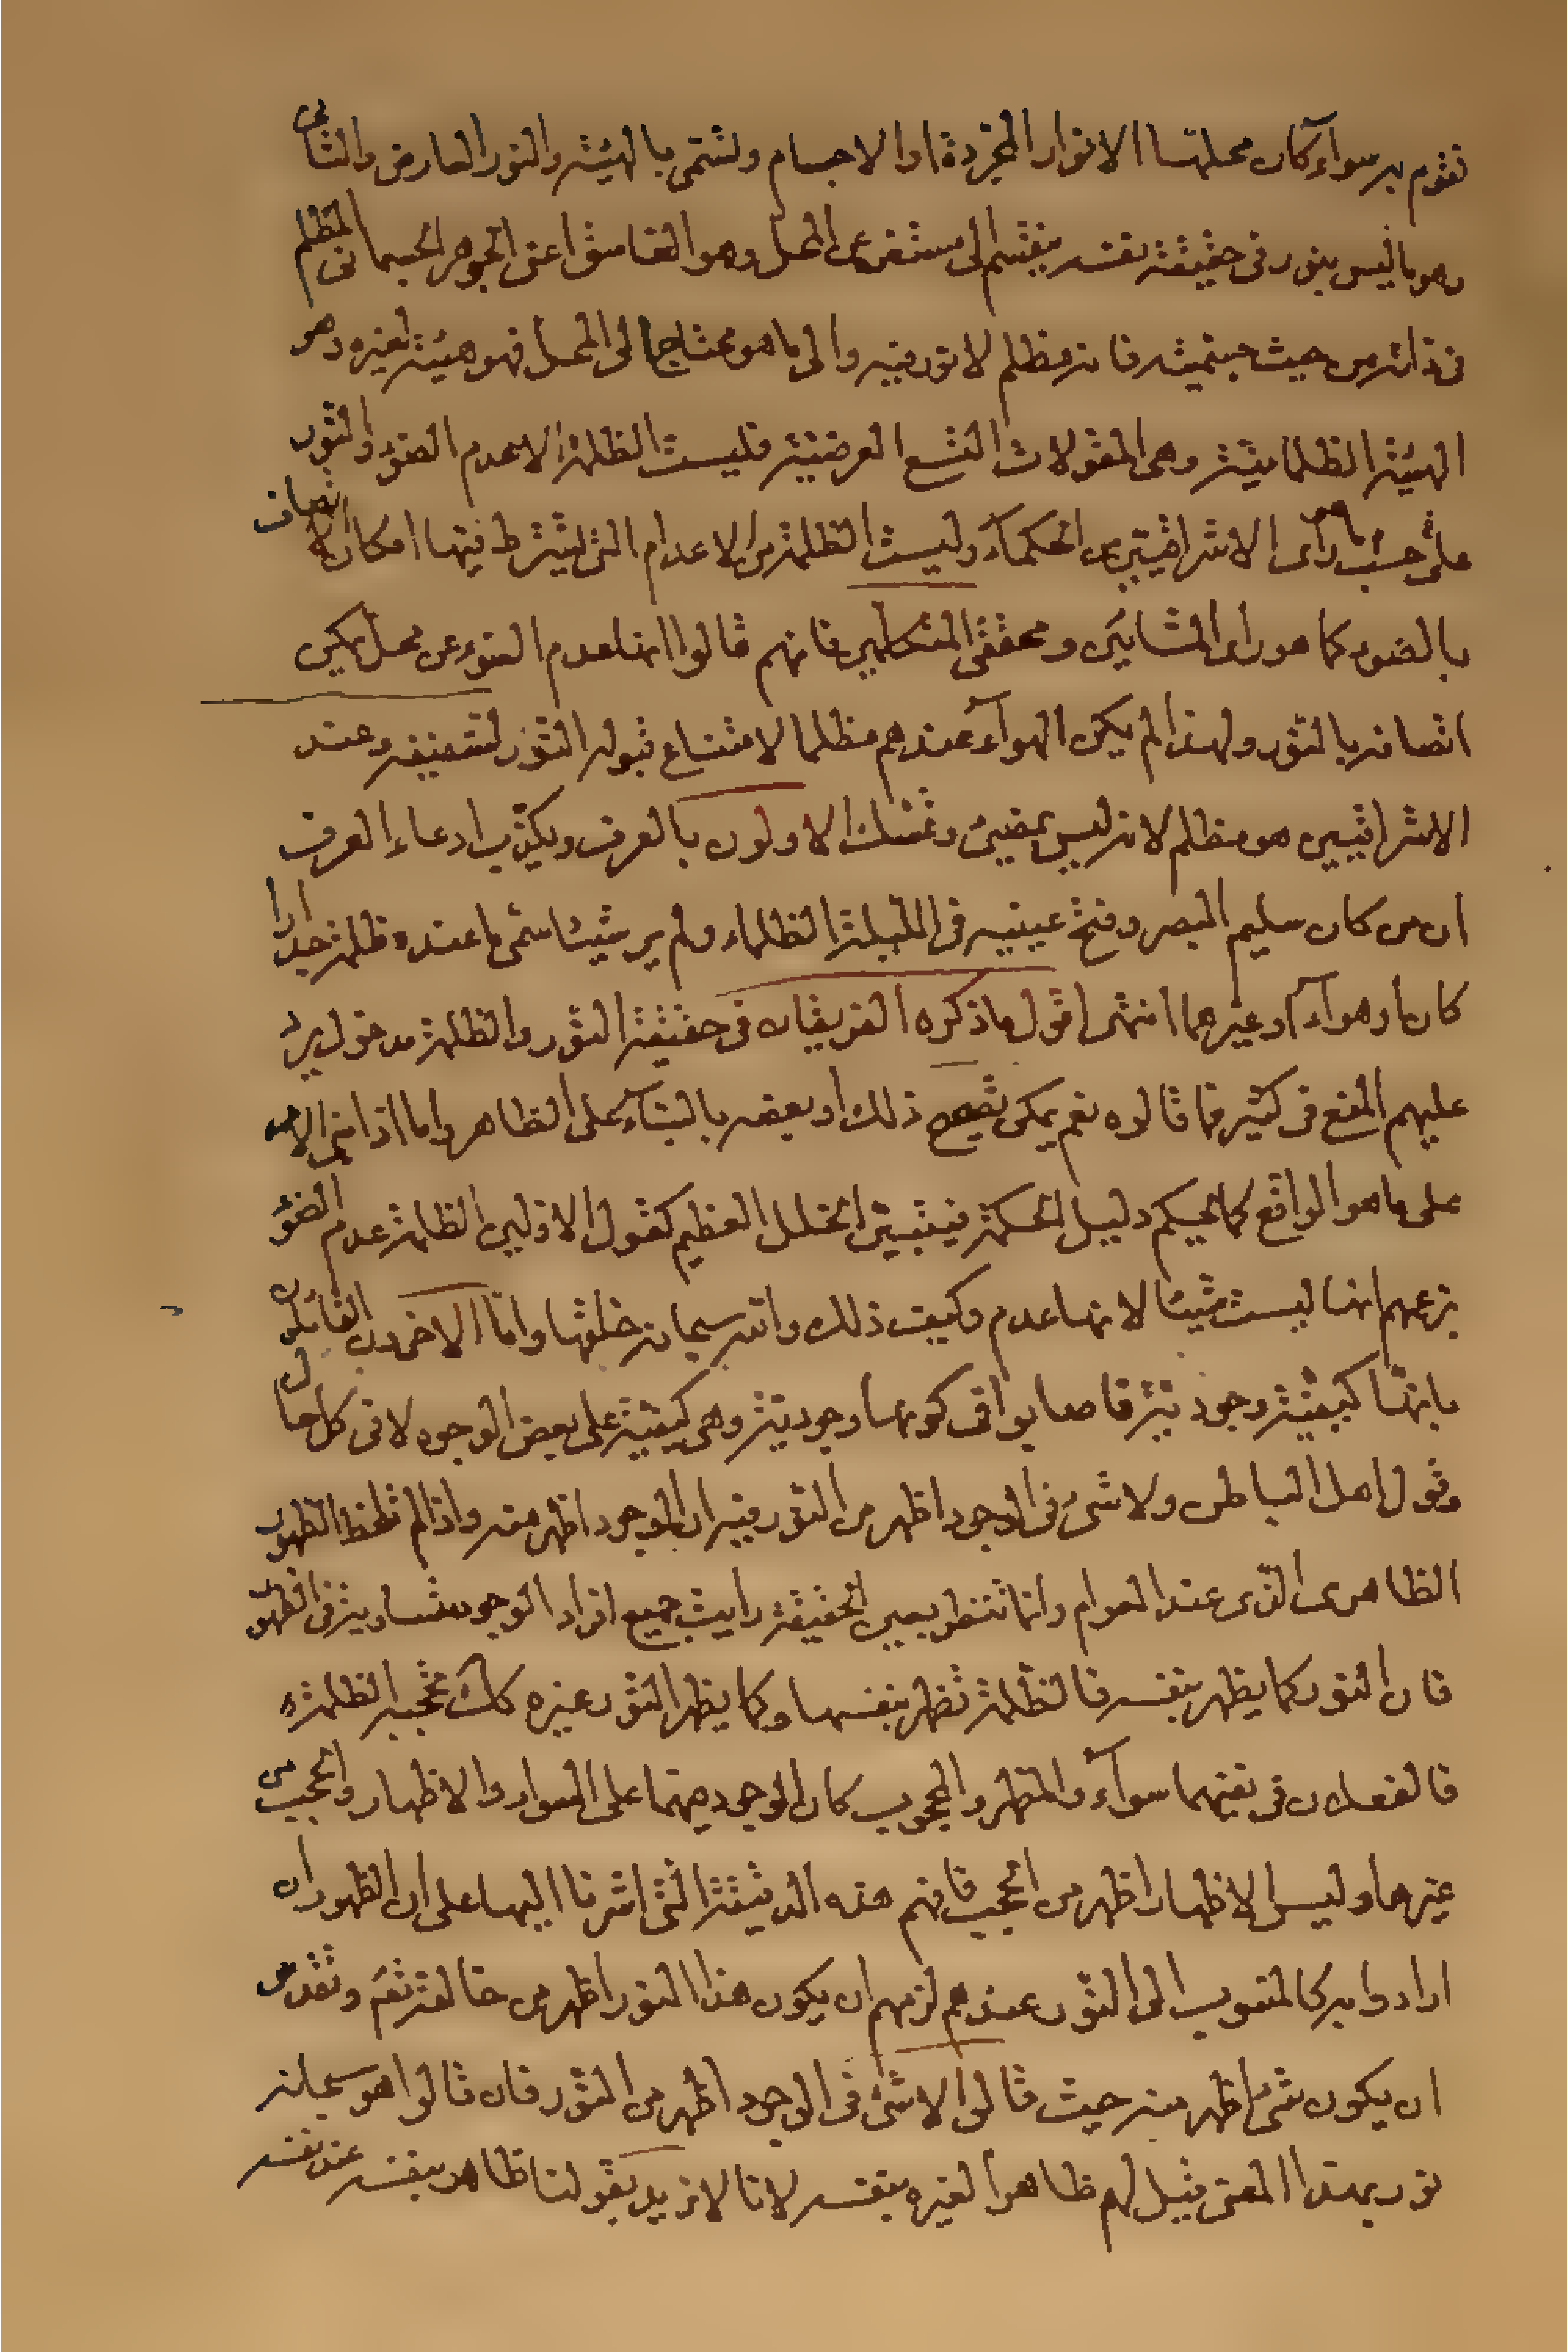 تقوم به سواء كان محلها الانوار المجردة او الاجسام وتسمى بالهيئة والنور العارض والثانى
وهو ما ليس بنور فى حقيقة نفسه ينقسم الى مستغن عن المحل وهو الغاسق اعنى الجوهر الجسمانى المظلم
فى ذاته من حيث جسميته فانه مظلم لا نور فيه والى ما هو محتاج الى المحل فهو هيئة لغيره وهو
الهيئة الظلمانية وهى المقولات التسع العرضية فليست الظلمة الا عدم الضوء والنور
على حسب ما رأى الاشراقيين من الحكماء وليست الظلمة من الاعدام التى يشترط فيها امكان الاتصاف
بالضوء كما هو رأى المشائين ومحققى المتكلمين فانهم قالوا انها عدم الضوء عن محل يمكن
اتصافه بالنور ولهذا لم يكن الهوآء عندهم مظلما لامتناع قبوله النور لشفيفه وعند
الاشراقيين هو مظلم لانه ليس بمضئ وتمسك الاولون بالعرف ويكذب ادعاء العرف
ان من كان سليم البصر وفتح عينيه فى الليلة الظلماء ولم ير شيئا سمى ما عنده ظلمة جدارا
كان او هوآء او غيرهما انتهى اقول ما ذكره الفريقان فى حقيقة النور والظلمة مدخول يرد
عليهم المنع فى كثير مما قالوه نعم يمكن تصحيح ذلك او بعضه بالبنآء على الظاهر واما اذا بنى الامر
على ما هو الواقع كما يحكم دليل الحكمة فيتبين الخلل العظيم كقول الاولين الظلمة عدم الضوء
بزعمهم انها ليست شيئا لانها عدم وكيف ذلك والله سبحانه خلقها واما الاخرون القائلون
بانها كيفية وجودية فاصابوا فى كونها وجودية وهى كيفية على بعض الوجوه لا فى كل حال
وقول اهل الباطن ولا شئ فى الوجود اظهر من النور فيه ان الوجود اظهر منه واذا لم تلحظ الظهور
الظاهرى الذى عند العوام وانما تنظر بعين الحقيقة رايت جميع افراد الوجود متساوية فى الظهور
فان النور كما يظهر بنفسه فالظلمة تظهر بنفسها وكما يظهر النور غيره كك تحجبه الظلمة
فالفعلان فى نفيهما سوآء والمظهر والمحجوب كان الوجود منهما على السواء والاظهار والحجب من
غيرهما وليس الاظهار اظهر من الحجب فافهم هذه الدقيقة التى اشرنا اليها على ان الظهور ان
ارادوا به كالمنسوب الى النور عندهم لزمهم ان يكون هذا النور اظهر من خالقه تعم وتقدس
ان يكون شئ اظهر منه حيث قالوا لا شئ فى الوجود اظهر من النور فان قالوا هو سبحانه
نور بهذا المعنى قيل لهم ظاهرا لغيره بنفسه لانا لا نريد بقولنا ظاهر بنفسه عند نفسه